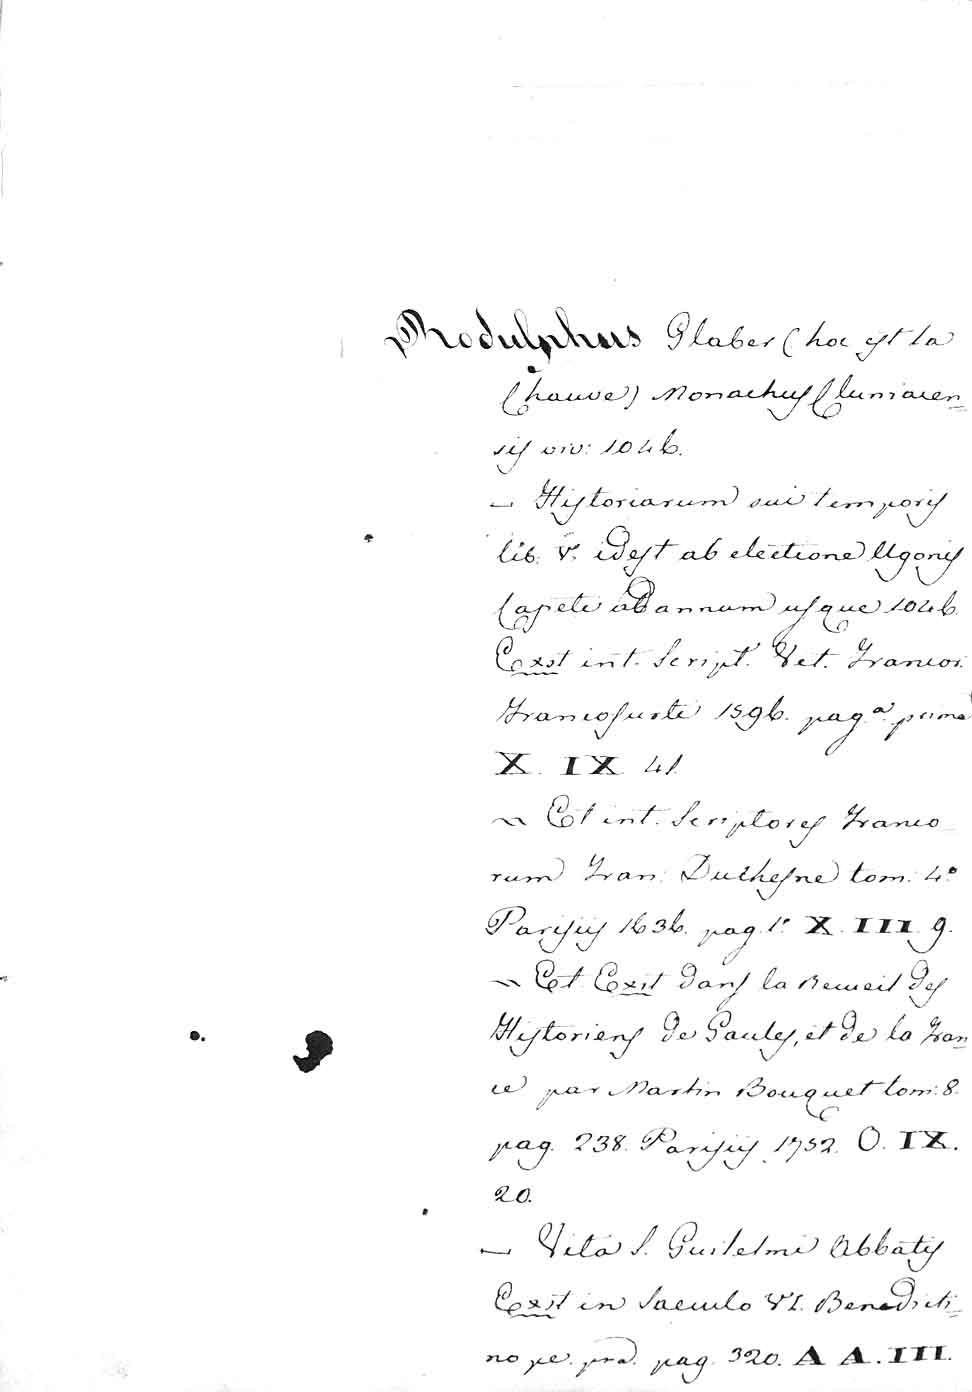 Rodulphus Glaber (hoc est la
Chauve) Monachus Cluniacen=
sis viv: 1046.
— Historiarum sui temporis
lib: V. idest ab electione Ugonis
Capeti ad annum usque 1046.
Exst int. Script. Vet. Francor.
Francofurti 1596. pag.ª prima
X. IX 41
~ Et int. Scriptores Franco_
rum Fran: Duchesne tom: 4º
Parisiis 1636. pag. 1ª X. III. 9.
~ Et. Exst dans la Recueil des
Historiens de Gaules, et de la Fran=
ce par Martin Bouquet tom: 8.
pag. 238. Parisiis 1752. O. IX.
20.
— Vita S. Guilelmi Abbatis
Exst in Saeculo VI. Benedicti=
no pag. 320. A A. III.